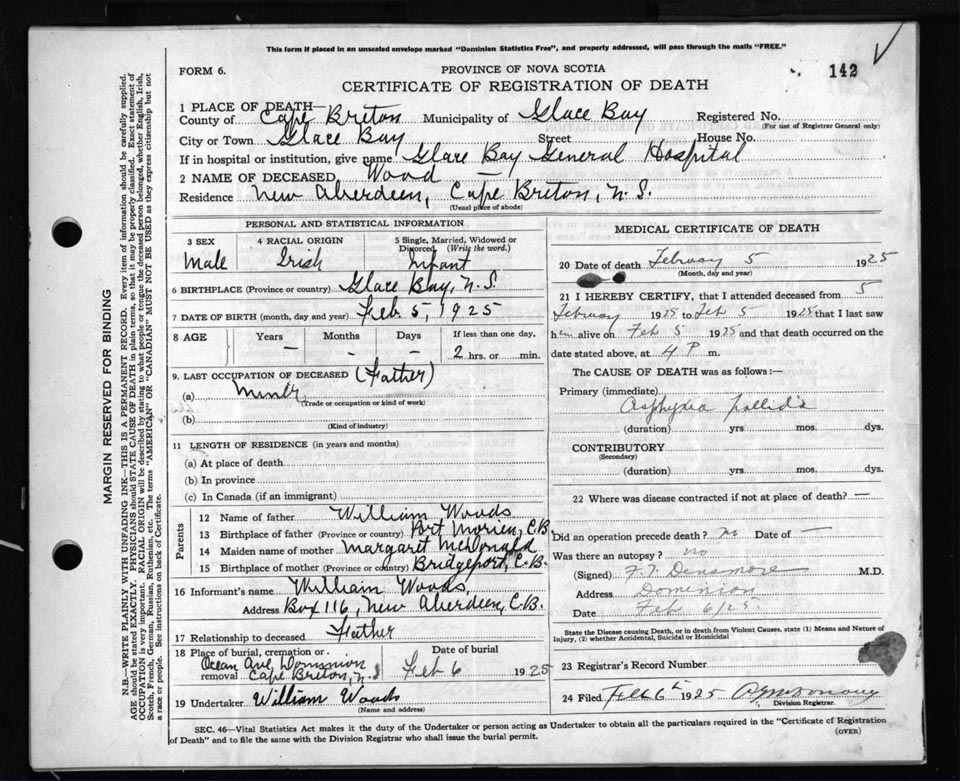 This form if placed in an unsealed envelope marked "Dominion Statistics Free", and properly addressed, will pass through the mails "FREE."
142
FORM 6.
PROVINCE OF NOVA SCOTIA
CERTIFICATE OF REGISTRATION OF DEATH
1 PLACE OF DEATH—
County of Cape Breton Municipality of Glace Bay Registered No.
(For use of Registrar General only)
City or Town Glace Bay Street House No.
If in hospital or institution, give name Glace Bay General Hospital
2 NAME OF DECEASED Wood —
Residence New Aberdeen, Cape Breton, N.S.
(Usual place of abode)
PERSONAL AND STATISTICAL INFORMATION
3 SEX 4 RACIAL ORIGIN 5 Single, Married, Widowed or Divorced (Write the word.)
Male Irish Infant
6 BIRTHPLACE (Province or country) Glace Bay, N.S.
7 DATE OF BIRTH (month, day and year) Feb 5, 1925
8 AGE Years Months Days If less than one day,
— - - 2 hrs. or min.
9. LAST OCCUPATION OF DECEASED (Father)
(a) Miner
(Trade or occupation or kind of work)
(b)
(Kind of industry)
11 LENGTH OF RESIDENCE (in years and months)
(a) At place of death
(b) In province
(c) In Canada (if an immigrant)
Parents
12 Name of father William Woods
13 Birthplace of father (Province or country) Port Morien, C.B.
14 Maiden name of mother Margaret McDonald
15 Birthplace of mother (Province or country) Bridgeport, C.B.
16 Informant's name William Woods,
Address Box 116, New Aberdeen, C.B.
17 Relationship to deceased Father
18 Place of burial, cremation or removal Date of burial
Ocean Ave, Dominion
Cape Breton, N.S Feb 6 1925
19 Undertaker William Woods
(Name and address)
MEDICAL CERTIFICATE OF DEATH
20 Date of death February 5 1925
(Month, day and year)
21 I HEREBY CERTIFY, that I attended deceased from 5
February 1925 to Feb 5 1925 that I last saw
him alive on Feb 5 1925 and that death occurred on the
date stated above, at 4 P m.
The CAUSE OF DEATH was as follows:—
Primary (immediate)
Asphyxia pallida
(duration) yrs mos. dys.
CONTRIBUTORY
(Secondary)
(duration) yrs. mos. dys.
22 Where was disease contracted if not at place of death? —
Did an operation precede death? no Date of —
Was there an autopsy? no
(Signed) F.T. Densmore M.D.
Address Dominion
Date Feb 6/25.
State the Disease causing Death, or in death from Violent Causes, state (1) Means and Nature of
Injury, (2) whether Accidental, Suicidal or Homicidal
23 Registrar's Record Number
24 Filed Feb 6th 1925
Division Registrar.
SEC. 46—Vital Statistics Act makes it the duty of the Undertaker or person acting as Undertaker to obtain all the particulars required in the "Certificate of Registration
of Death" and to file the same with the Division Registrar who shall issue the burial permit.
(OVER)
MARGIN RESERVED FOR BINDING
N.B.—WRITE PLAINLY WITH UNFADING INK—THIS IS A PERMANENT RECORD. Every item of information should be carefully supplied.
AGE should be stated EXACTLY. PHYSICIANS should STATE CAUSE OF DEATH in plain terms, so that it may be properly classified. Exact statement of
OCCUPATION is very important. RACIAL ORIGIN will be described by stating to what people or tongue the deceased person belonged, whether English, Irish,
Scotch, French, German, Russian, Ruthenian, etc. The terms "AMERICAN" or "CANADIAN" MUST NOT BE USED as they express citizenship but not
a race or people. See instructions on back of Certificate.